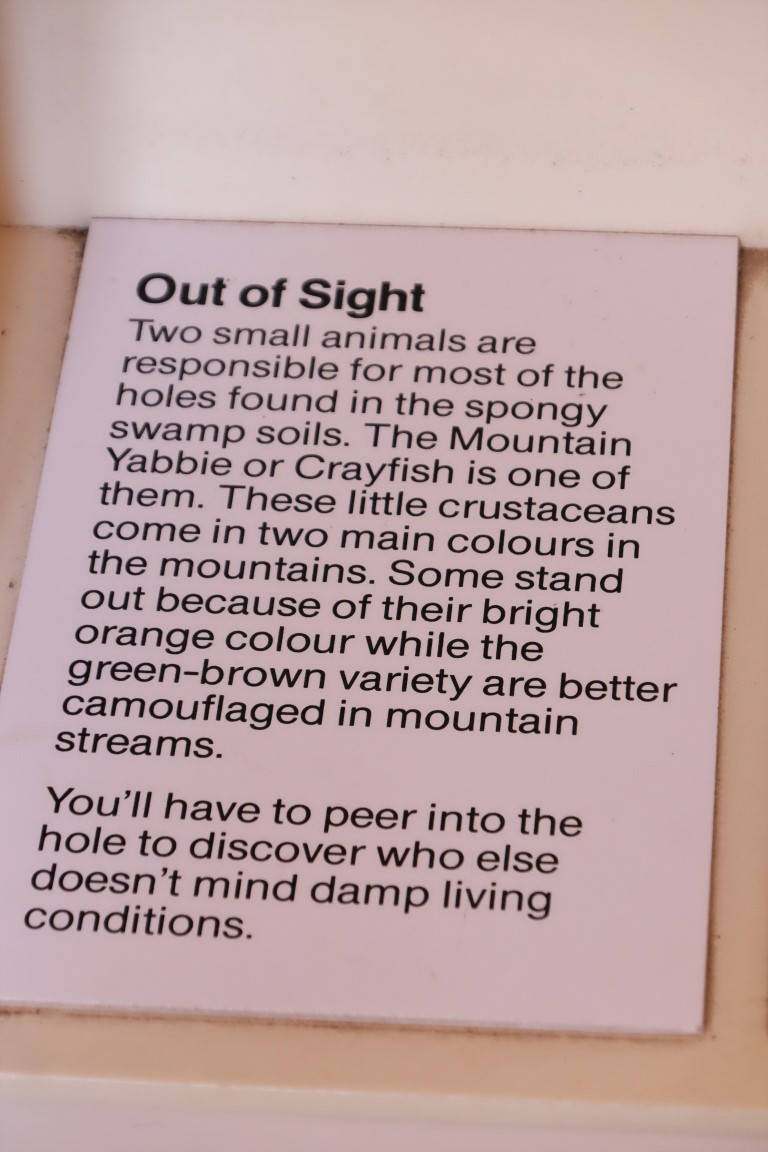 Out of Sight
Two small animals are
responsible for most of the
holes found in the spongy
swamp soils. The Mountain
Yabbie or Crayfish is one of
them. These little crustaceans
come in two main colours in
the mountains. Some stand
out because of their bright
orange colour while the
green-brown variety are better
camouflaged in mountain
streams.
You'll have to peer into the
hole to discover who else
doesn't mind damp living
conditions.